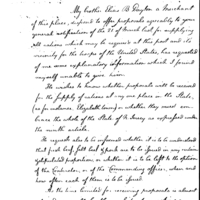 My brother Elias B Dayton a Merchant
of this place, disposed to offer proposals agreeably to your
general notification of the 22 of March last for supplying
all rations which may be required at this post and its
vicinity for the troops of the United States, has requested
of me some explanatory information which I found
myself unable to give him.
He wishes to know whether proposals will be received
for the supply of rations at any one place in the State,
(as for instance Elizabeth town) or whether they must em-
brace the whole of the State of N Jersey as expressed under
the ninth article.
He requests also to be informed whether it is to be understood
that fresh beef, salt beef & pork are to be served in any certain
stipulated proportion, or whether it is to be left to the option
of the Contractor, or of the Commanding officer, when and
how often each of them is to be served
As the time limited for receiving proposals is almost